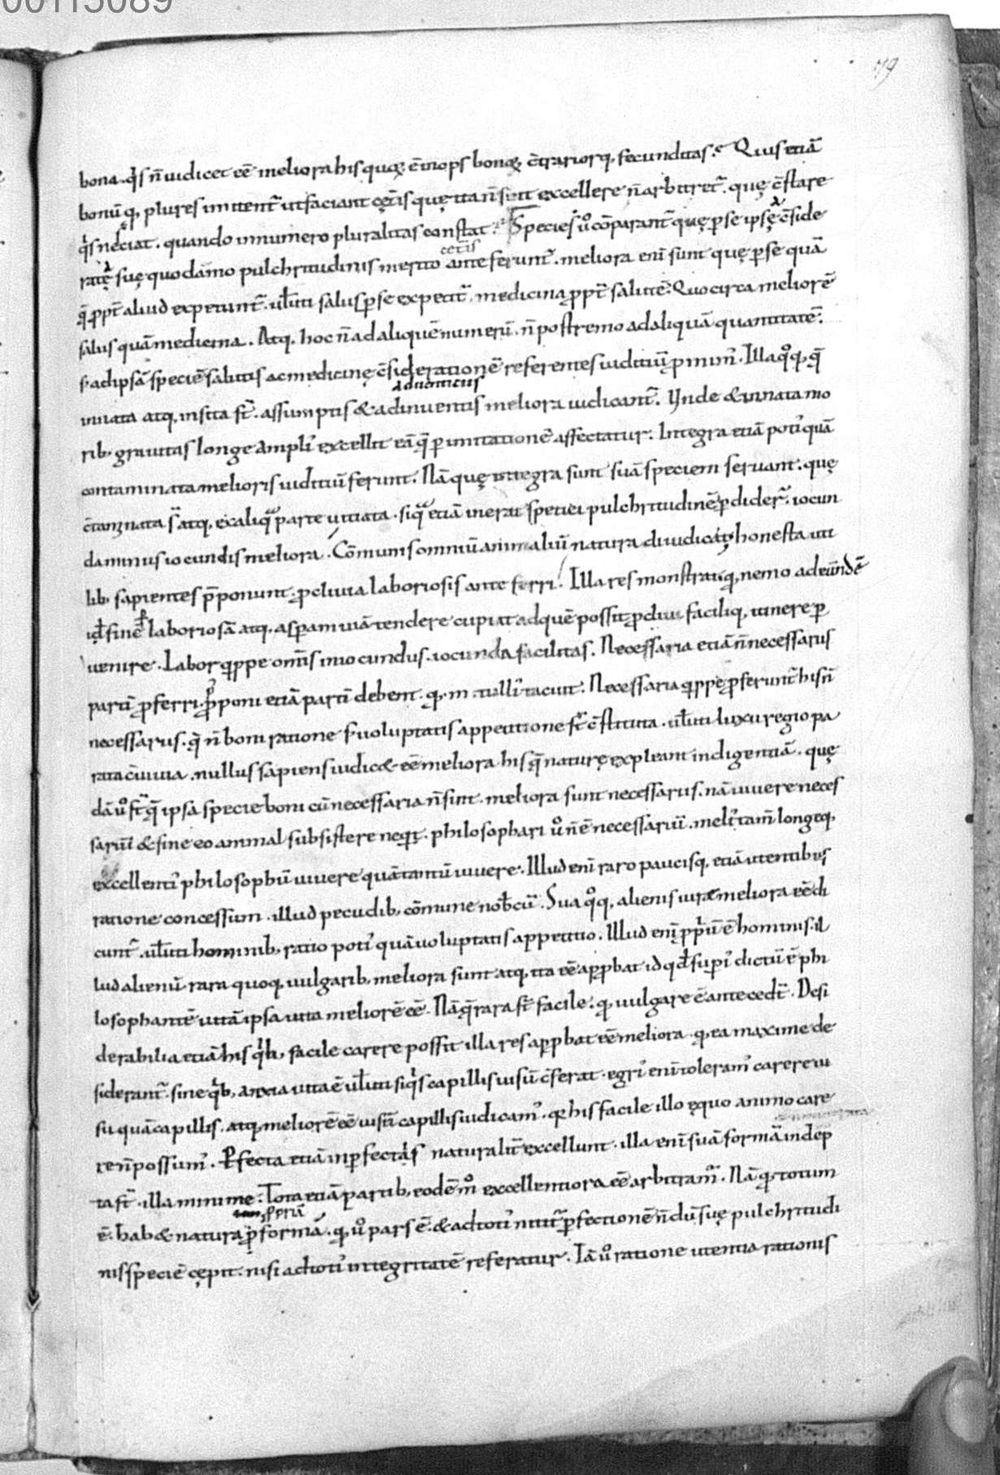 00115089
79
bona. qͥs n̄ iudicet eē meliora his quoꝝ ē inops bonoꝝ c̄trariorq; fecunditas. Quis etiā
bonū q; plures imitent̄ ut faciant cęt̄is quę ita n̄ sunt excellere n̄ arbitret̄. quę c̄stare
qͥs nesciat. quando in numero pluralitas constat. Species ů cōparant̄ quę p se ipsę c̄side
ratę suę quodāmo pulchritudinis merito cet̄is anteferunt̄. meliora eni sunt quę p se quā
q̄ ꝓpt̄ aliud expetunt̄. uł uti salus p se expetit̄. medicina ꝓpt̄ salutē. Quo circa meliorē
salus quā medicina. Atq; hoc n̄ ad aliquē numerū. n̄ postremo ad aliquā quantitatē.
s; ad ipsā speciē salutis ac medicinę c̄siderationē referentes iuditiū p mim̄. Illa qͦq; q̄
innata atq; insita st̄. assumptis & adinuentis aduenticiis meliora iudicant̄. Unde & innata mo
rib; grauitas longe ampliꝰ excellit eā q̄ p imitationē affectatur. Integra etiā potiꝰ quā
contaminata melioris iuditiū ferunt. Nā quę integra sunt suā speciem seruant. quę
c̄taminata s̄t atq; ex aliqͣ parte uitiata. siqͣ etiā inerat spetiei pulchritudinē pdider̄. iocun
da minus iocundis meliora. Cōmunis omniū animaliū natura diiudicat honesta uti
lib; sapientes p̄ponunt. ꝓcliuia laboriosis anteferri. Illa res monstrat q; nemo ad eundē
finē laboriosā atq; asperam uiā tendere cupiat ad quē possit ꝓcliui faciliq; itinere p
uenire. Labor qͥppe om̄is iniocundus. iocunda facilitas. Necessaria etiā n̄ necessariis
partī ꝓferri. p̄poni etiā partī debent. qͦ m. tulliꝰ tacuit. Necessaria qͥppe ꝓferunt̄ his n̄
necessariis. q̄ n̄ boni ratione s; uoluptatis appetitione st̄ c̄stituta. uł uti luxu regio pa
rata c̄uiuia. nullus sapiens iudic& eē meliora his q̄ naturę expleant indigentiā. quę
dā ů st̄ q̄ ipsa specie boni cū necessaria n̄ sint. meliora sunt necessariis. nā uiuere neces
sariū & sine eo animal subsistere neqͥt. philosophari ů n̄ ē necessariū. meliꝰ tam̄ longeq;
excellentiꝰ philosophū uiuere quā tantū uiuere. Illud eni raro paucisq; etiā utentibus
ratione concessum. illud pecudib; cōmune nobcū. Sua qͦq; alienis iure meliora eē di
cunt̄. uł uti hominib; ratio potiꝰ quā uoluptatis appetitio. Illud eni ꝓpriū ē hominis. il
lud alienū rara quoq; uulgarib; meliora sunt atq; ita eē apꝓbat id qd̄ supiꝰ dictū ē phi
losophantē uitā ipsa uita meliorē eē. Nā q̄ rara st̄ facile. qͦ uulgare ē antecedt̄. Desi
derabilia etiā his qͥb; facile carere possit illa res apꝓbat eē meliora. qͦ ea maxime de
siderant̄. sine qͥb; anxia uita ē uł uti siqͥs capillis uisū c̄ferat. egriꝰ eni toleramꝰ carere ui
su quā capillis. atq; meliorē eē uisū capillis iudicamꝰ. qͦ his facile illo ęquo animo care
re n̄ possumꝰ. Perfecta etiā inpfectis naturalit̄ excellunt. illa eni suā formā indep
ta st̄. illa minime. Tota etiā partib; eodē mͦ excellentiora eē arbitramꝰ. Nā qͦ totum
ē. hab& natura ꝓpriā formā. qͦ ů pars ē. & ad totiꝰ nitit̄ pfectionē n̄ dū suę pulchritudi
nis speciē cępit. nisi ad totiꝰ integritatē referatur. Iā ů ratione utentia rationis